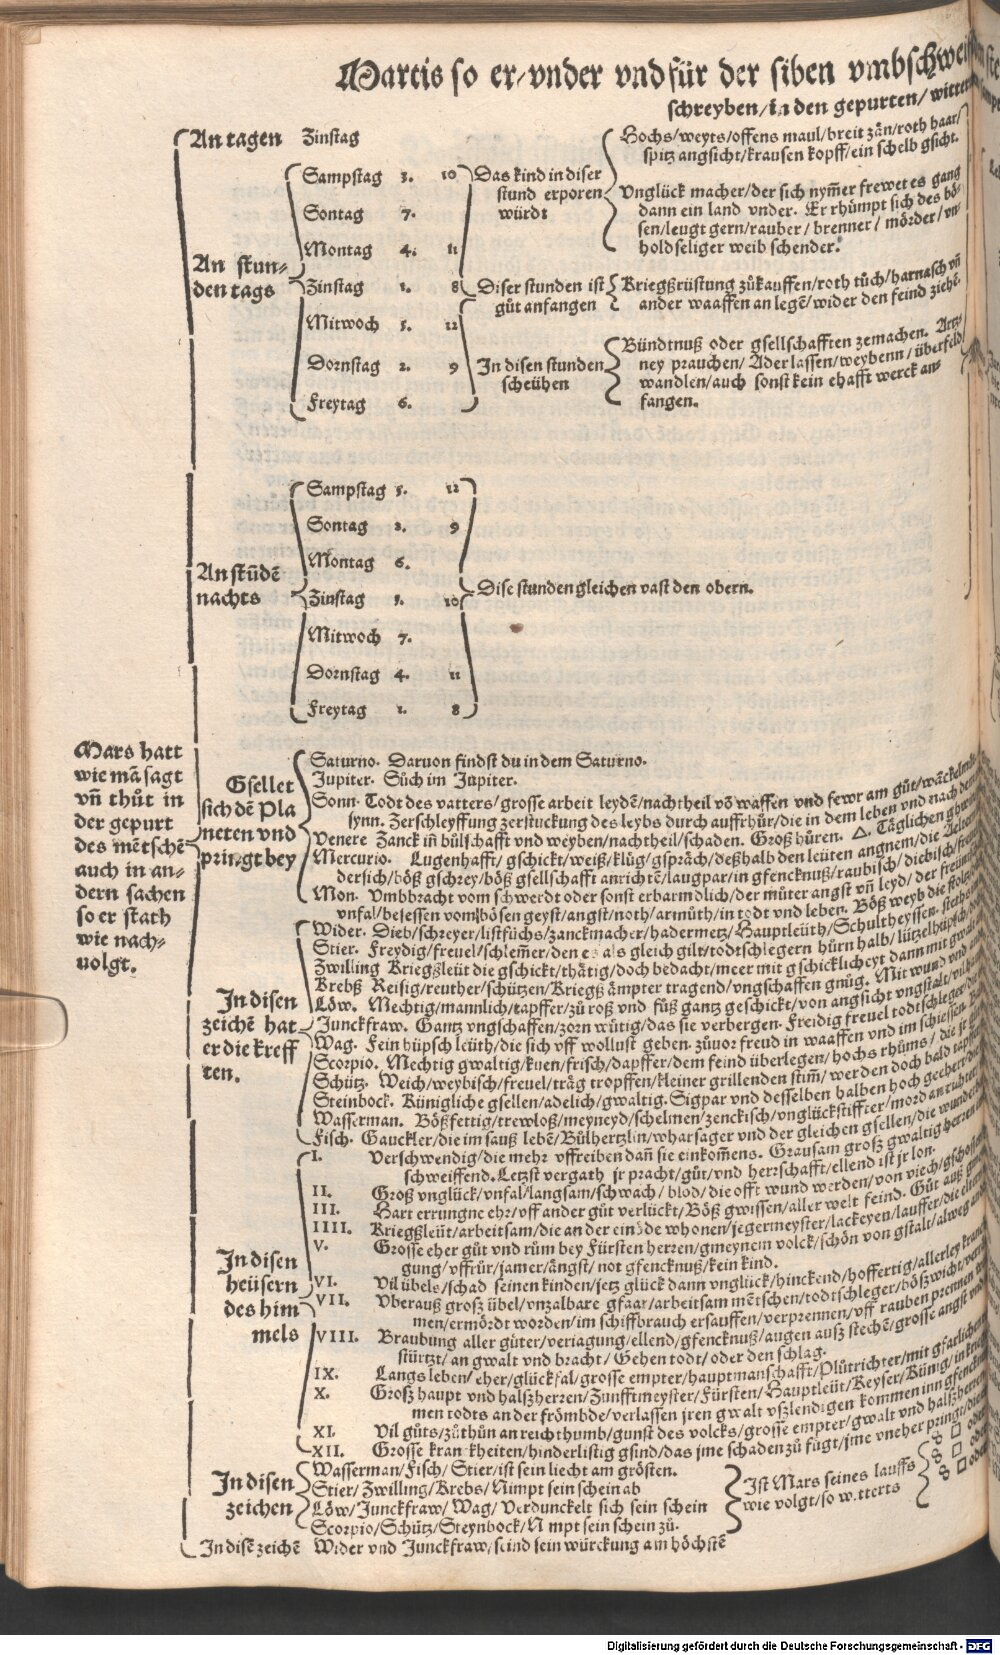 Martis so er/vnder vnd für der siben vmbschwei
schreyben/in den gepurten/witter
An tagen Zinstag
An stun-
den tags
Sampstag 3. 10
Sontag 7.
Montag 4. 11
Zinstag 1. 8
Mitwoch 5. 12
Dornstag 2. 9
Freytag 6.
Das kind in diser
stund erporen
würdt
Hochs/weyts/offens maul/breit zän/roth haar/
spitz angsicht/krausen kopff/ein schelb gsicht.
Vnglück macher/der sich nym̄er frewet es gang
dann ein land vnder. Er rhümpt sich des bö-
sen/leugt gern/rauber/brenner/mörder/vn-
holdseliger weib schender.
Diser stunden ist
gůt anfangen
Kriegßrüstung zůkauffen/roth tůch/harnasch vñ
ander waaffen an legē/wider den feind ziehē.
In disen stunden
scheühen
Bündtnuß oder gsellschafften zemachen. Artz-
ney prauchen/Ader lassen/weybenn/überfeld
wandlen/auch sonst kein ehafft werck an-
fangen.
An stūdē
nachts
Sampstag 5. 12
Sontag 2. 9
Montag 6.
Zinstag 3. 10
Mitwoch 7.
Dornstag 4. 11
Freytag 1. 8
Dise stunden gleichen vast den obern.
Mars hatt
wie mā sagt
vñ thůt in
der gepurt
des mētschē
auch in an-
dern sachen
so er stath
wie nach-
uolgt.
Gsellet
sich dē Pla
neten vnd
pringt bey
Saturno. Daruon findst du in dem Saturno.
Jupiter. Sůch im Jupiter.
Sonn. Todt des vatters/grosse arbeit leydē/nachtheil vō waffen vnd fewr am gůt/wāckelmůt
synn. Zerschleyffung zerstuckung des leybs durch auffrhůr/die in dem leben vnd nach dem
Venere Zanck iñ bůlschafft vnd weyben/nachtheil/schaden. Groß hůren. △. Täglichen
Mercurio. Lugenhafft/gschickt/weiß/klůg/gspräch/deßhalb den leüten angnem/die
dersich/böß gschrey/böß gsellschafft anrichtē/laugpar/in gfencknuß/raubisch/diebisch/
Mon. Vmbbracht vom schwerdt oder sonst erbarmdlich/der můter angst vñ leyd/der
vnfal/besessen vom bösen geyst/angst/noth/armůth/in todt vnd leben. Böß weyb die
In disen
zeichē hat
er die kreff
ten.
Wider. Dieb/schreyer/listfüchs/zanckmacher/hadermetz/Hauptleüth/Schultheyssen.
Stier. Freydig/freuel/schlem̄er/den es als gleich gilt/todtschlegern hürn halb/
Zwilling Kriegßleüt die gschickt/thätig/doch bedacht/meer mit gschicklicheyt dann mit gwalt
Krebß Reisig/reuther/schützen/Kriegß ämpter tragend/vngschaffen gnůg. Mit wund vnd
Löw. Mechtig/mannlich/tapffer/zů roß vnd fůß gantz geschickt/von angsicht vngstalt/
Junckfraw. Gantz vngschaffen/zorn wütig/das sie verbergen. Freidig freuel todtschleger/
Wag. Fein hüpsch leüth/die sich vff wollust geben. zůuor freud in waaffen vnd im schiessen.
Scorpio. Mechtig gwaltig/kuen/frisch/dapffer/dem feind überlegen/hochs rhůms/
Schütz. Weich/weybisch/freuel/träg tropffen/kleiner grillenden stim̄/werden doch bald
Steinbock. Künigliche gsellen/adelich/gwaltig. Sigpar vnd desselben halben hoch geehrt/
Wasserman. Bößfertig/trewloß/meyneyd/schelmen/zenckisch/vnglückstiffter/mord
Fisch. Gauckler/die im sauß lebē/Bůlhertzlin/wharsager vnd der gleichen gsellen/die
In disen
heüsern
des him
mels
I. Verschwendig/die mehr vffreiben dañ sie einkom̄ens. Grausam groß gwaltig herren
schweiffend. Letzst vergath jr pracht/gůt/vnd herrschafft/ellend ist jr lon.
II. Groß vnglück/vnfal/langsam/schwach/blöd/die offt wund werden/von viech/
III. Hart errungne ehr/vff ander gůt verlückt/Böß gwissen/aller welt feind. Gůt auß
IIII. Kriegßleüt/arbeitsam/die an der einöde whonen/jegermeyster/lackeyen/lauffer/
V. Grosse eher gůt vnd rům bey Fürsten herren/gmeynem volck/schön von gstalt/
gung/vffrůr/jamer/ängst/not gfencknuß/kein kind.
VI. Vil übels/schad seinen kinden/jetz glück dann vnglück/hinckend/hoffertig/allerley
VII. Vberauß groß übel/vnzalbare gfaar/arbeitsam mētschen/todtschleger/bößwicht/
men/ermördt worden/im schiffbrauch ersauffen/verprennen/vff rauben prennen
VIII. Braubung aller güter/veriagung/ellend/gfencknuß/augen auß stechē/grosse angst
stürtzt/an gwalt vnd bracht/Gehen todt/oder den schlag.
IX. Langs leben/eher/glückfal/grosse empter/hauptmanschafft/Plůtrichter/mit
X. Groß haupt vnd halßherren/Zunfftmeyster/Fürsten/Hauptleüt/Keyser/Künig/
men todts an der frömbde/verlassen jren gwalt vßlendigen kommen inn
XI. Vil gůts/zůthůn an reichthumb/gunst des volcks/grosse empter/gwalt vnd halßherren
XII. Grosse kranckheiten/hinderlistig gsind/das jme schaden zů fůgt/jme vneher pringt/
In disen
zeichen
Wasserman/Fisch/Stier/ist sein liecht am grösten.
Stier/Zwilling/Krebs/Nimpt sein schein ab
Löw/Junckfraw/Wag/Verdunckelt sich sein schein
Scorpio/Schütz/Steynbock/Nimpt sein schein zů.
Ist Mars seines lauffs
wie volgt/so witterts
☍ □ oder
☍ □ oder
☍ □ oder
In disē zeichē Wider vnd Junckfraw/seind sein würckung am höchstē
Digitalisierung gefördert durch die Deutsche Forschungsgemeinschaft - DFG